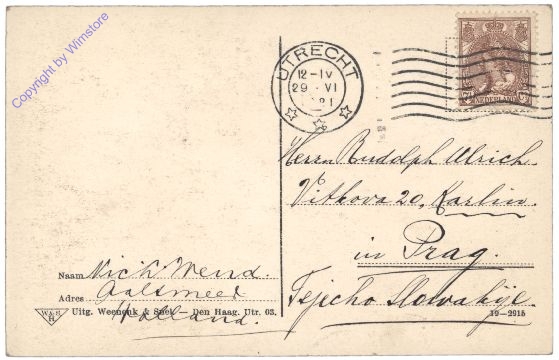 Copyright by Wimstore
UTRECHT
12-IV
29 VI
NEDERLAND
Herrn Rudolph Ulrich.
Vitkova 20, Karlin.
in Prag.
Tsjecho Slowakije.
Naam Nick Wend.
Adres Aalsmeer
Holland.
W&S
H
Uitg. Weenenk & Snek — Den Haag. Utr. 03.
19-2915